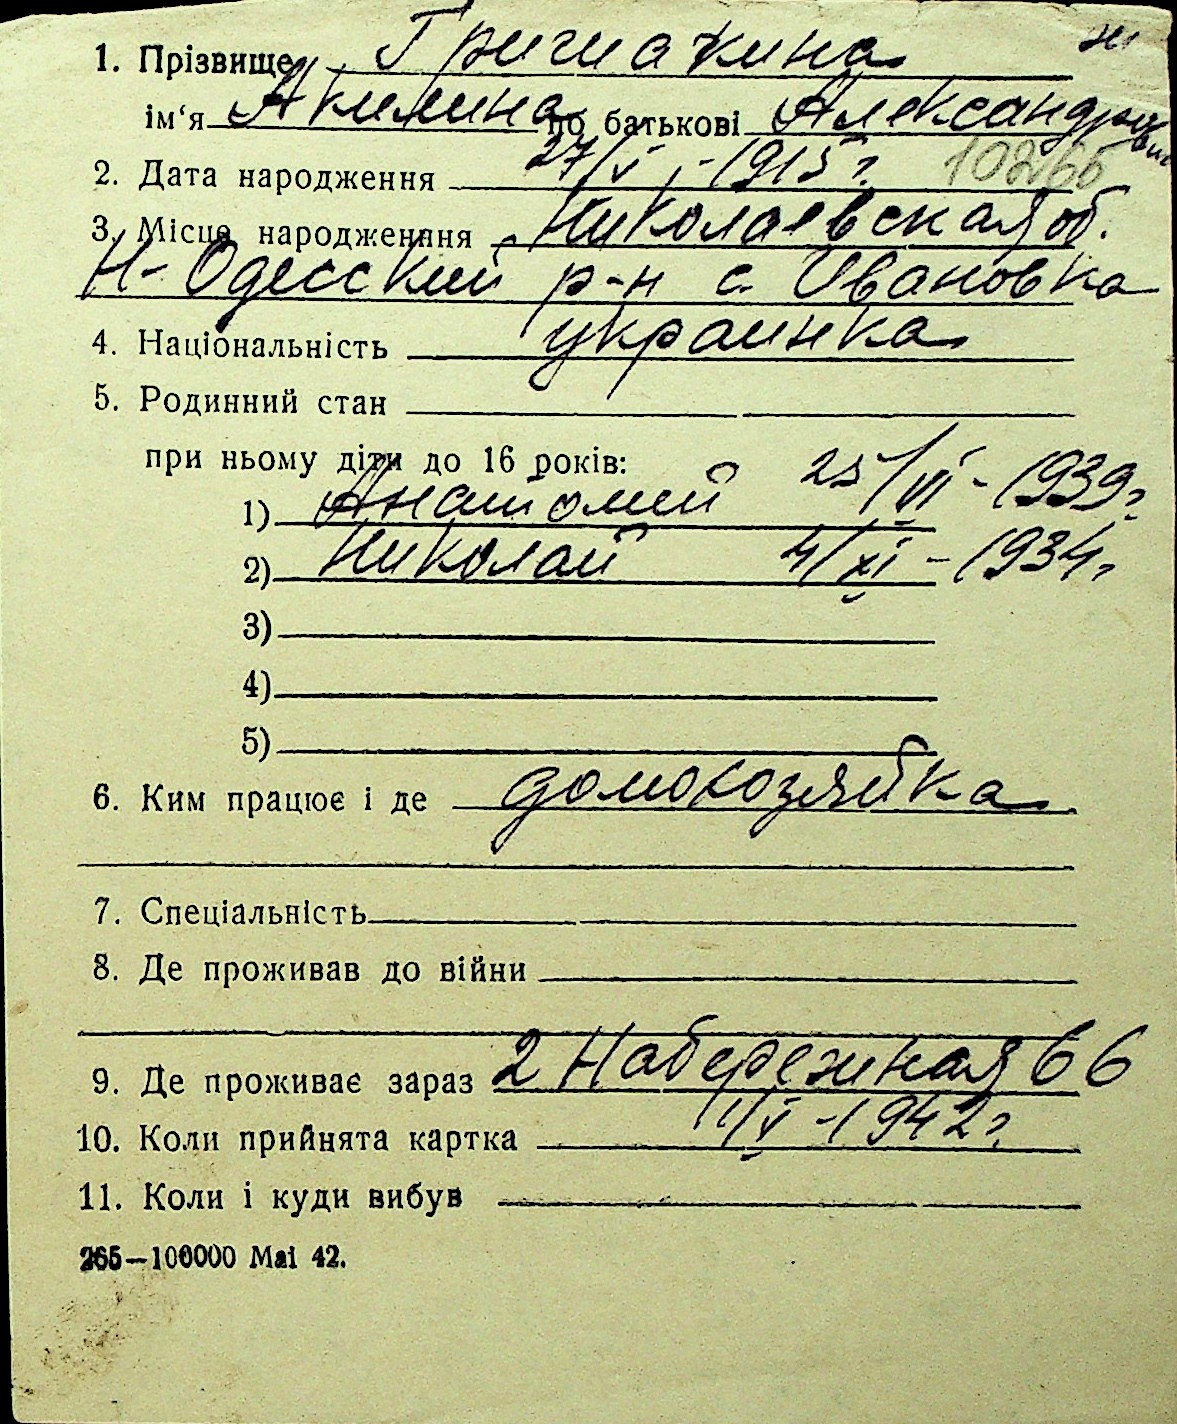 1. Прізвище Гришакина
ім‘я Акилина по батькові Александровна
2. Дата народження 27/V - 1915 г. 10266
3. Місце народженння Николаевская об.
Н-Одесский р-н с. Ивановка
4. Національність украинка
5. Родинний стан
при ньому діти до 16 років:
1) Анатолий 25/VI - 1939 г.
2) Николай 4/XI - 1934 г.
3)
4)
5)
6. Ким працює і де домохозяйка
7. Спеціальність
8. Де проживав до війни
9. Де проживає зараз 2 Набережная 66
10. Коли прийнята картка 1/V - 1942 г.
11. Коли і куди вибув
265—100000 Mai 42.